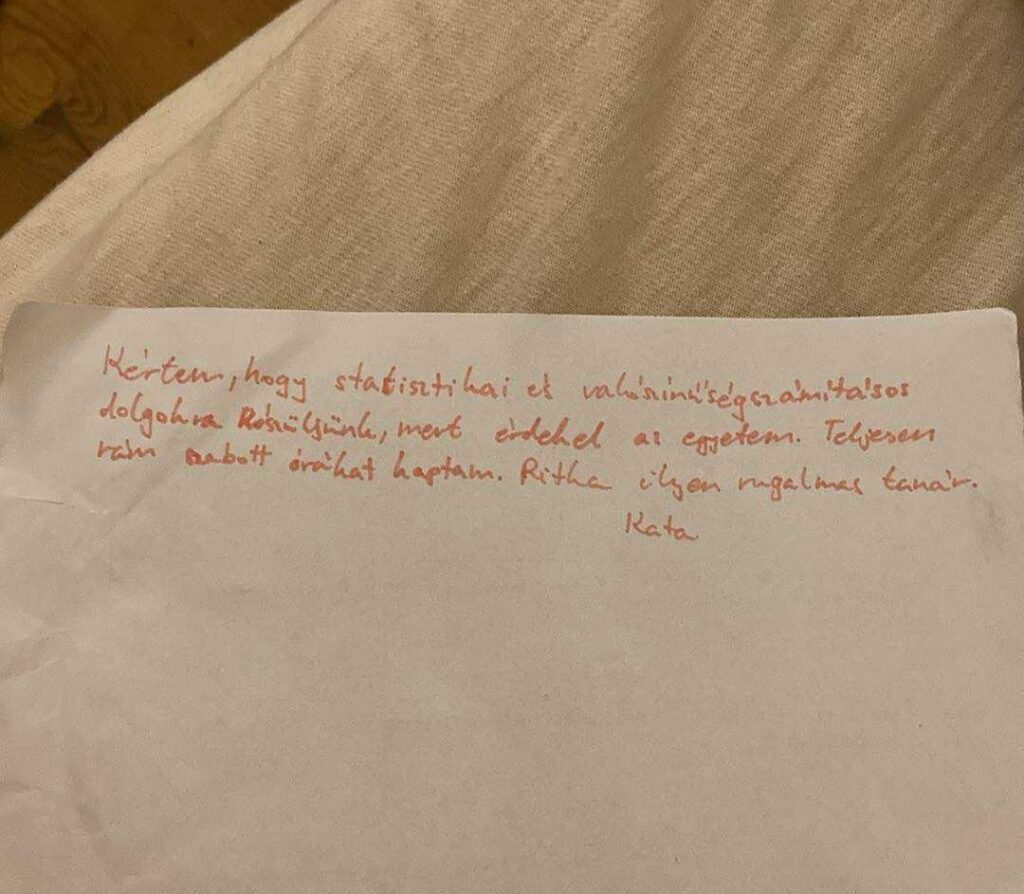 Kértem, hogy statisztikai és valószínűségszámításos
dolgokra készüljünk, mert érdekel az egyetem. Teljesen
rám szabott órákat kaptam. Ritka ilyen rugalmas tanár.
Kata